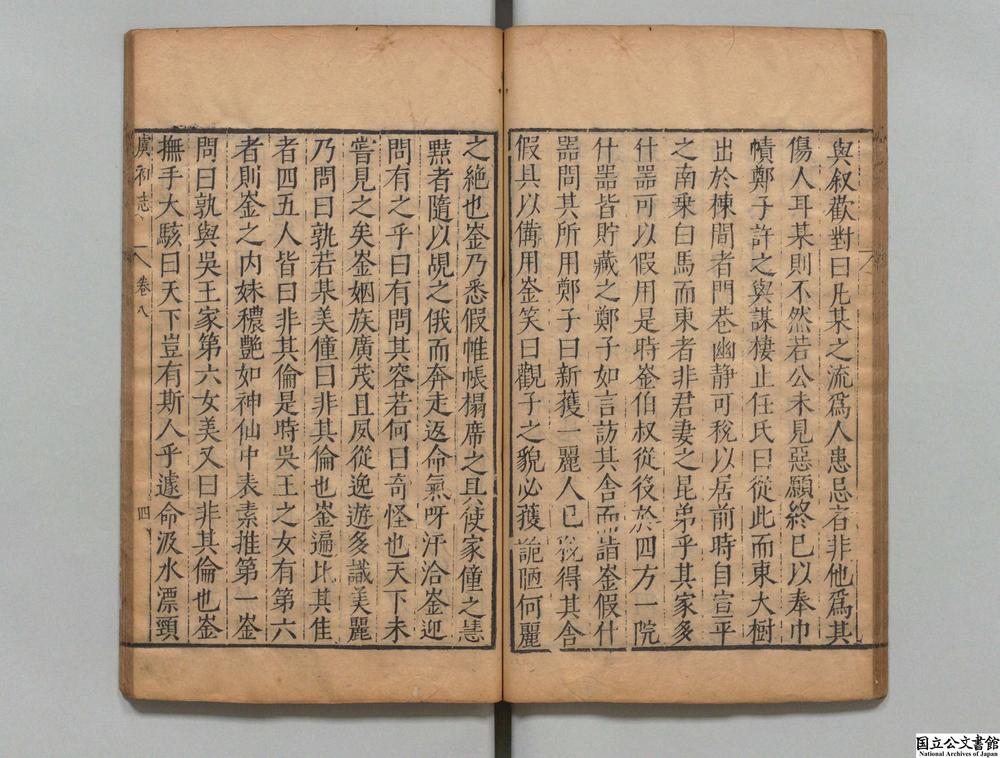 與叙歡對曰凡某之流爲人患忌者非他爲其
傷人耳某則不然若公未見惡願終已以奉巾
幘鄭子許之與謀棲止任氏曰從此而東大樹
出於棟間者門巷幽静可稅以居前時自宣平
之南乗白馬而東者非君妻之昆弟乎其家多
什噐可以假用是時崟伯叔從役於四方一院
什噐皆貯藏之鄭子如言訪其舎而詣崟假什
噐問其所用鄭子曰新獲一麗人已稅得其舎
假具以俻用崟笑曰觀子之貌必獲詭陋何麗
之絶也崟乃悉假帷帳榻席之具使家僮之慧
黠者隨以覘之俄而奔走返命氣吁汗洽崟迎
問有之乎曰有問其容若何曰奇怪也天下未
嘗見之矣崟姻族廣茂且夙從逸遊多識美麗
乃問曰孰若某美僮曰非其倫也崟遍比其佳
者四五人皆曰非其倫是時吳王之女有第六
者則崟之内妹穠艶如神仙中表素推第一崟
問曰孰與吳王家第六女美又曰非其倫也崟
撫手大駭曰天下豈有斯人乎遽命汲水漂頸
虞初志 卷八 四
国立公文書館
National Archives of Japan